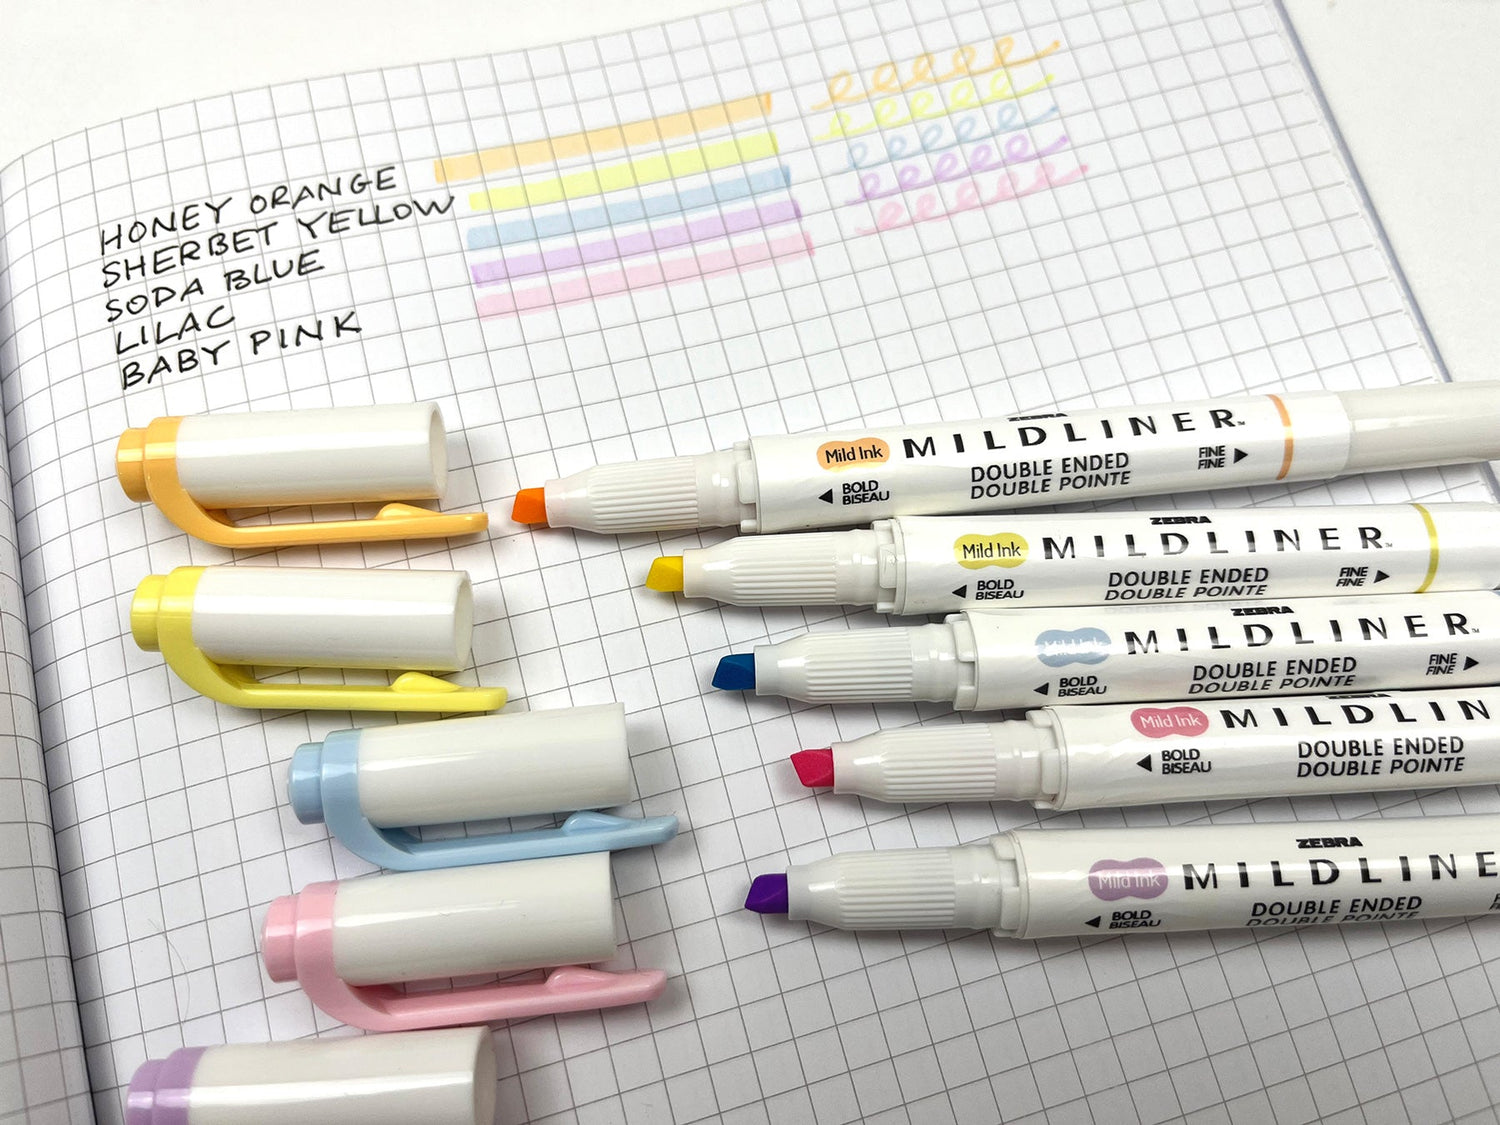 HONEY ORANGE
SHERBET YELLOW
SODA BLUE
LILAC
BABY PINK
ZEBRA
Mild Ink MILDLINER™
◀ BOLD BISEAU DOUBLE ENDED DOUBLE POINTE FINE FINE ▶
ZEBRA
Mild Ink MILDLINER™
◀ BOLD BISEAU DOUBLE ENDED DOUBLE POINTE FINE FINE ▶
ZEBRA
Mild Ink MILDLINER™
◀ BOLD BISEAU DOUBLE ENDED DOUBLE POINTE FINE FINE ▶
ZEBRA
Mild Ink MILDLIN
◀ BOLD BISEAU DOUBLE ENDED DOUBLE POINTE
ZEBRA
Mild Ink MILDLINE
◀ BOLD BISEAU DOUBLE ENDED DOUBLE POINTE